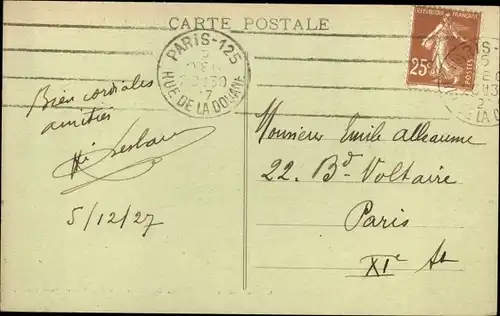 CARTE POSTALE
PARIS-125
RUE DE LA DOUANE
RÉPUBLIQUE FRANÇAISE
25c
POSTES
Bien cordiales
amitiés
5/12/27
Monsieur Emile alleaume
22. Bd Voltaire
Paris
XIe